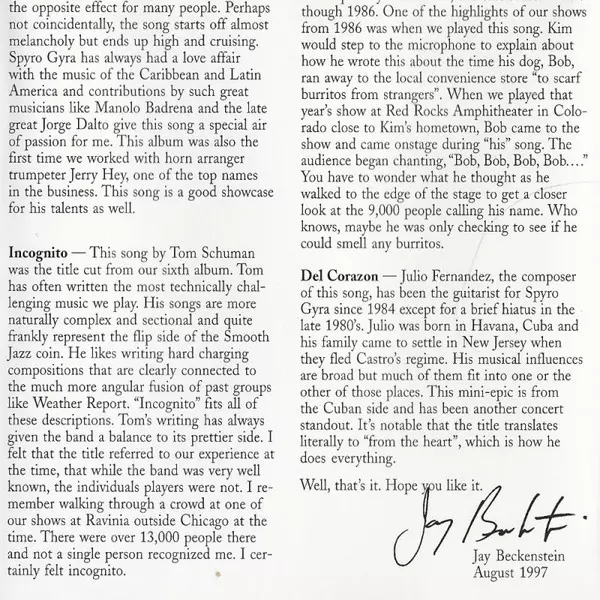 the opposite effect for many people. Perhaps
not coincidentally, the song starts off almost
melancholy but ends up high and cruising.
Spyro Gyra has always had a love affair
with the music of the Caribbean and Latin
America and contributions by such great
musicians like Manolo Badrena and the late
great Jorge Dalto give this song a special air
of passion for me. This album was also the
first time we worked with horn arranger
trumpeter Jerry Hey, one of the top names
in the business. This song is a good showcase
for his talents as well.
Incognito — This song by Tom Schuman
was the title cut from our sixth album. Tom
has often written the most technically chal-
lenging music we play. His songs are more
naturally complex and sectional and quite
frankly represent the flip side of the Smooth
Jazz coin. He likes writing hard charging
compositions that are clearly connected to
the much more angular fusion of past groups
like Weather Report. “Incognito” fits all of
these descriptions. Tom's writing has always
given the band a balance to its prettier side. I
felt that the title referred to our experience at
the time, that while the band was very well
known, the individuals players were not. I re-
member walking through a crowd at one of
our shows at Ravinia outside Chicago at the
time. There were over 13,000 people there
and not a single person recognized me. I cer-
tainly felt incognito.
though 1986. One of the highlights of our shows
from 1986 was when we played this song. Kim
would step to the microphone to explain about
how he wrote this about the time his dog, Bob,
ran away to the local convenience store “to scarf
burritos from strangers”. When we played that
year's show at Red Rocks Amphitheater in Colo-
rado close to Kim's hometown, Bob came to the
show and came onstage during “his” song. The
audience began chanting, “Bob, Bob, Bob, Bob....”
You have to wonder what he thought as he
walked to the edge of the stage to get a closer
look at the 9,000 people calling his name. Who
knows, maybe he was only checking to see if he
could smell any burritos.
Del Corazon — Julio Fernandez, the composer
of this song, has been the guitarist for Spyro
Gyra since 1984 except for a brief hiatus in the
late 1980's. Julio was born in Havana, Cuba and
his family came to settle in New Jersey when
they fled Castro's regime. His musical influences
are broad but much of them fit into one or the
other of those places. This mini-epic is from
the Cuban side and has been another concert
standout. It's notable that the title translates
literally to “from the heart”, which is how he
does everything.
Well, that's it. Hope you like it.
Jay Beckenstein
August 1997